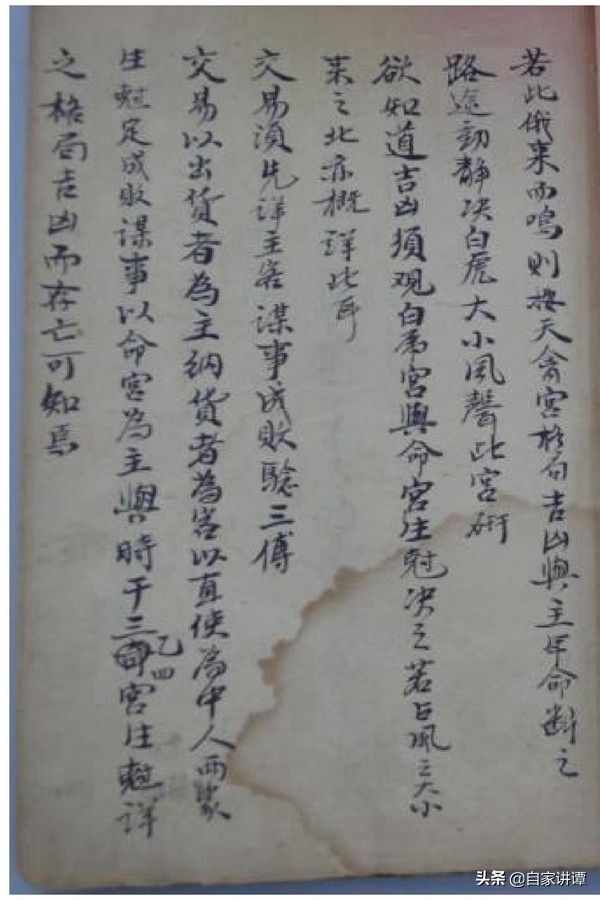 若此俄来而鳴則按天禽宮格局吉凶與主年命斷之
路途動静决白虎大小風聲此宮研
欲知道吉凶須观白虎宮與命宮生尅决之若占風之大小
来之北亦概詳此耳
交易須先詳主客謀事成敗驗三傳
交易以出货者為主納货者為客以直使為中人兩家
生尅定成敗謀事以命宮為主與時干三宮生尅詳
乙四
之格局吉凶而存亡可知焉
头条 @自家讲谭